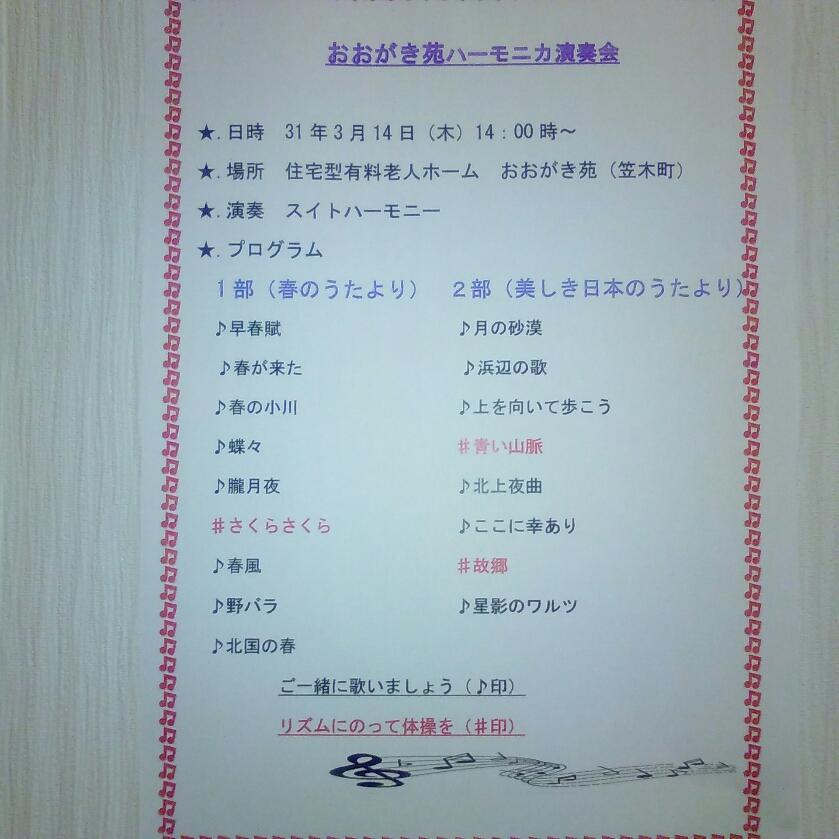 おおがき苑ハーモニカ演奏会
★.日時　31年3月14日（木）14：00時～
★.場所　住宅型有料老人ホーム　おおがき苑（笠木町）
★.演奏　スイトハーモニー
★.プログラム
1部（春のうたより）　2部（美しき日本のうたより）
♪早春賦　♪月の砂漠
♪春が来た　♪浜辺の歌
♪春の小川　♪上を向いて歩こう
♪蝶々　♯青い山脈
♪朧月夜　♪北上夜曲
♯さくらさくら　♪ここに幸あり
♪春風　♯故郷
♪野バラ　♪星影のワルツ
♪北国の春
ご一緒に歌いましょう（♪印）
リズムにのって体操を（♯印）